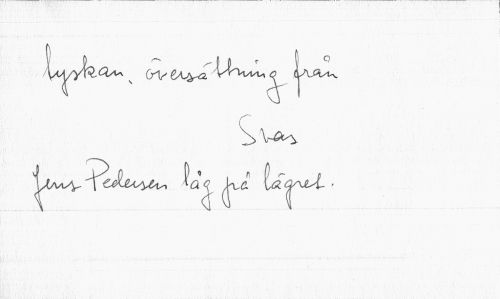 tyskan, översättning från
Svas
Jens Pedersen låg på lägret.